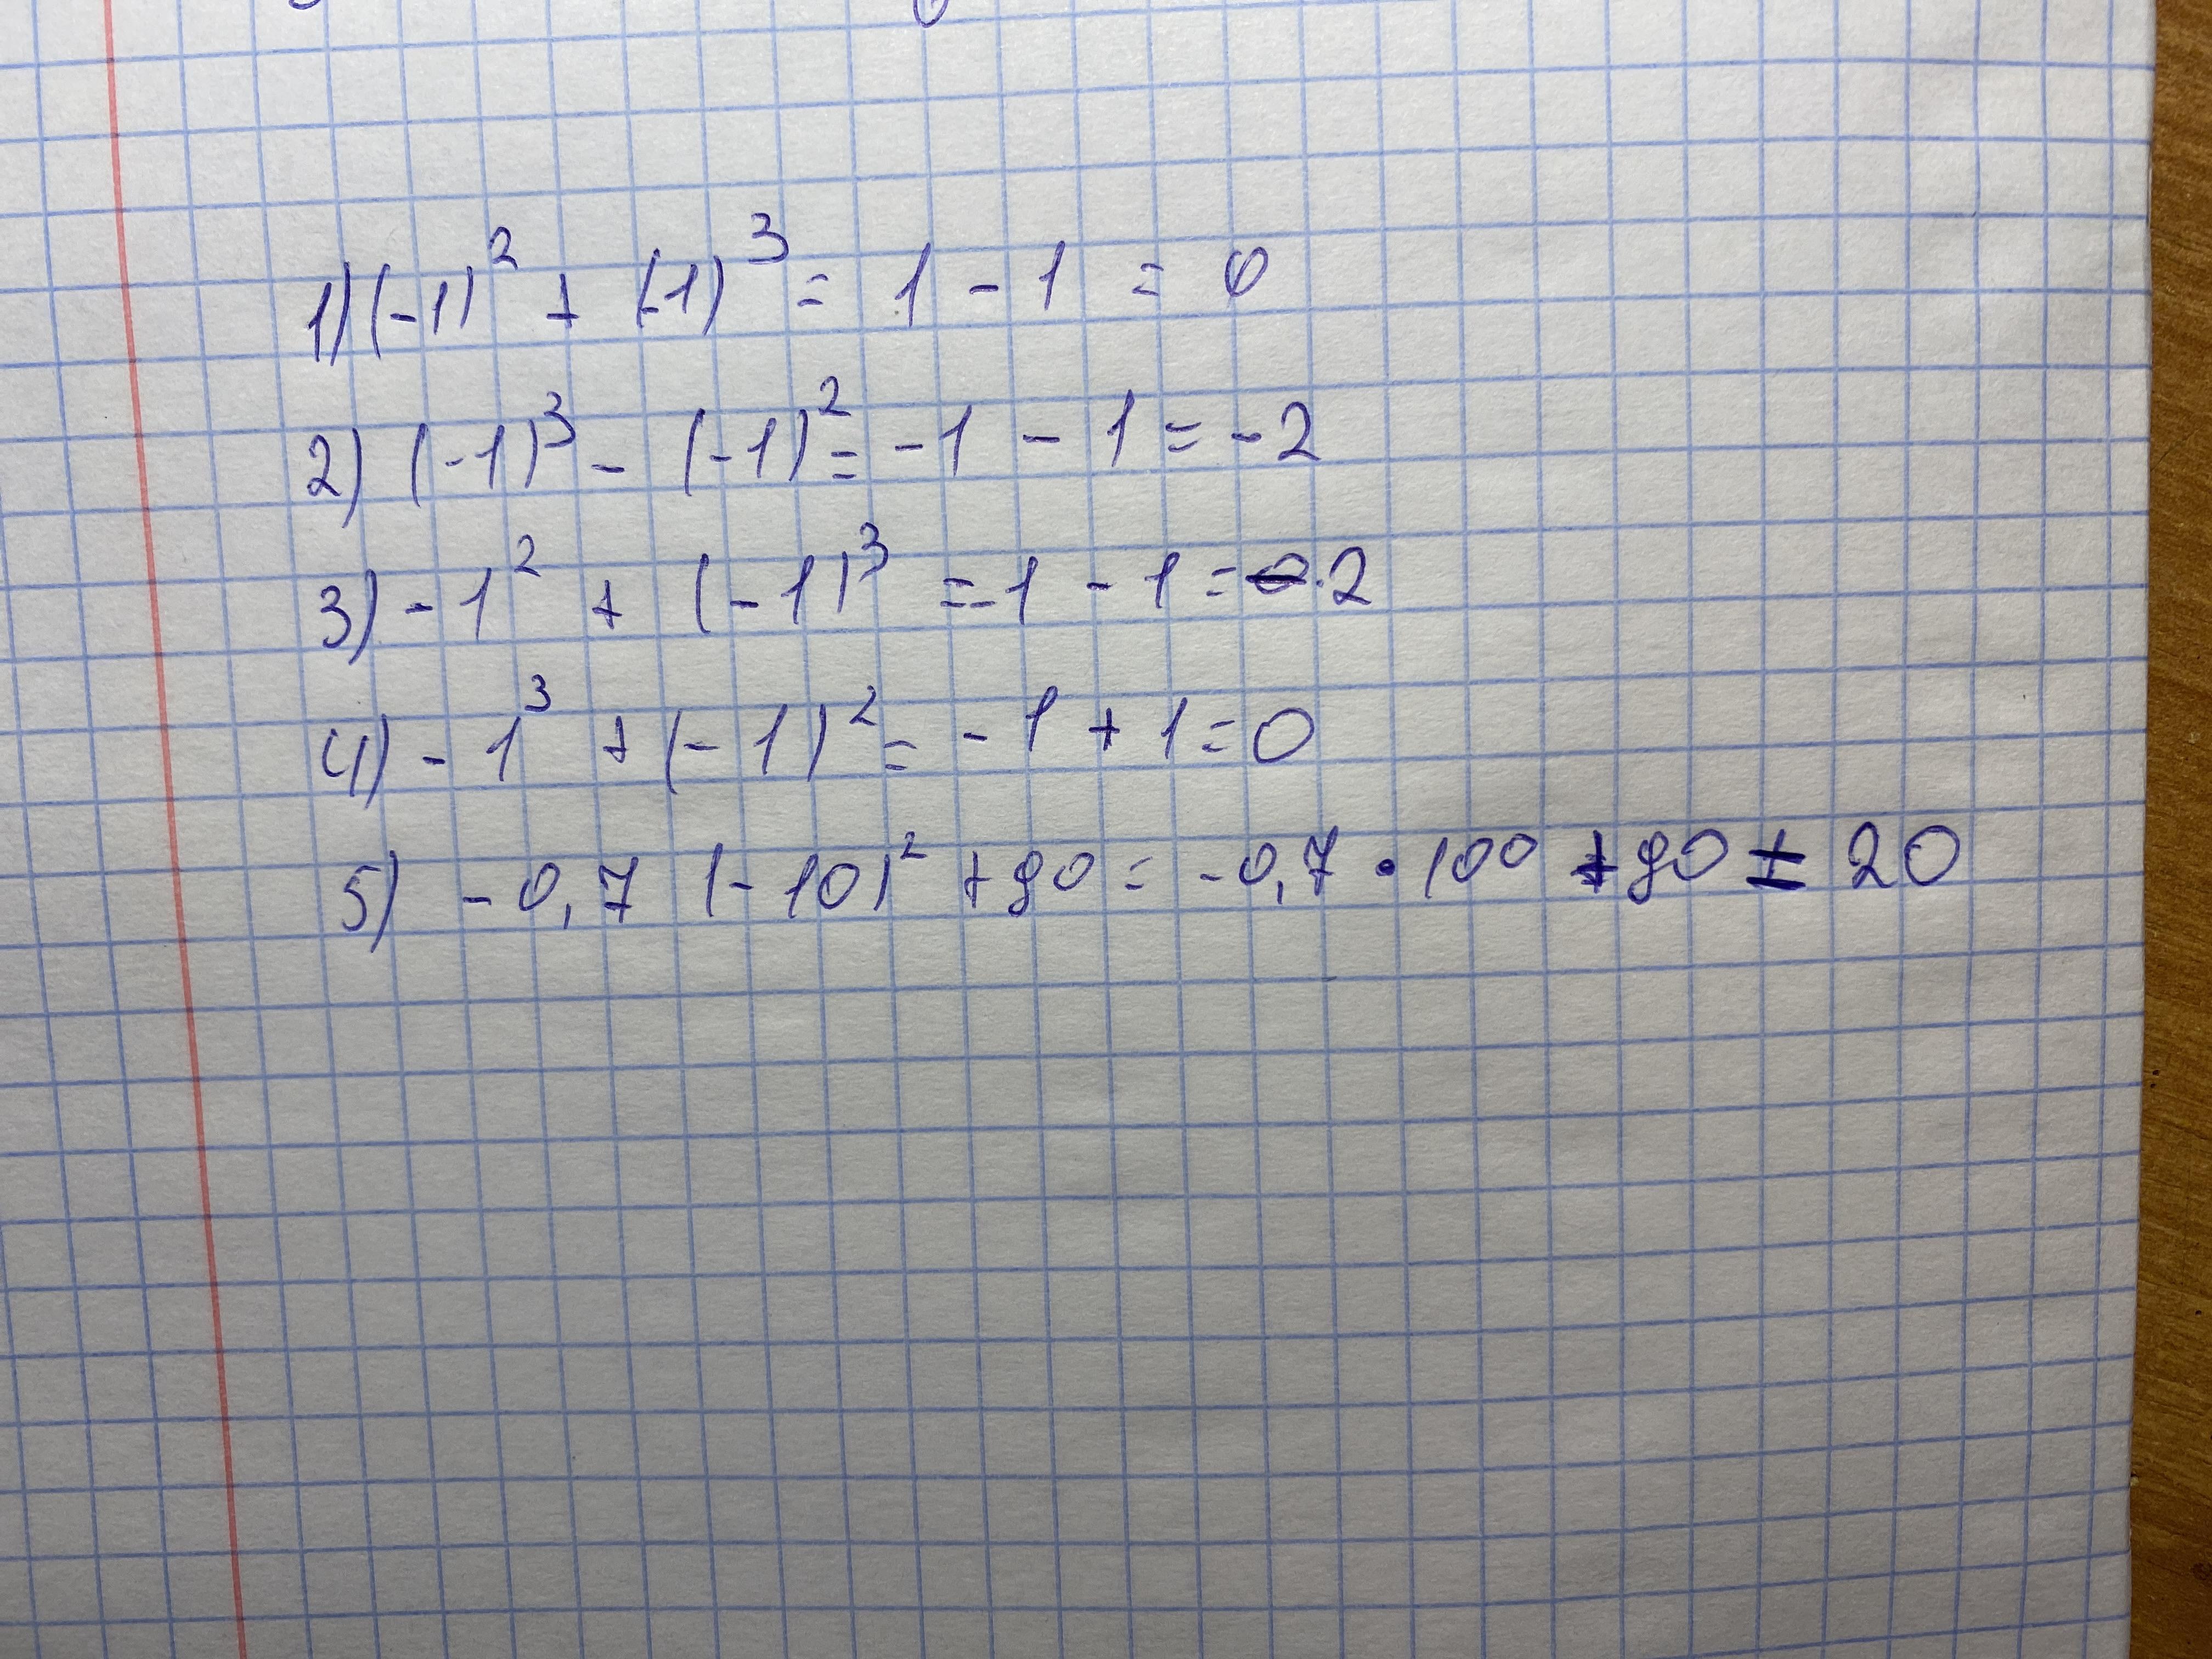 1) (-1)² + (-1)³ = 1 - 1 = 0
2) (-1)³ - (-1)² = -1 - 1 = -2
3) -1² + (-1)³ = -1 - 1 = -2
4) -1³ + (-1)² = -1 + 1 = 0
5) -0,7 (-10)² + 90 = -0,7 · 100 + 90 = 20